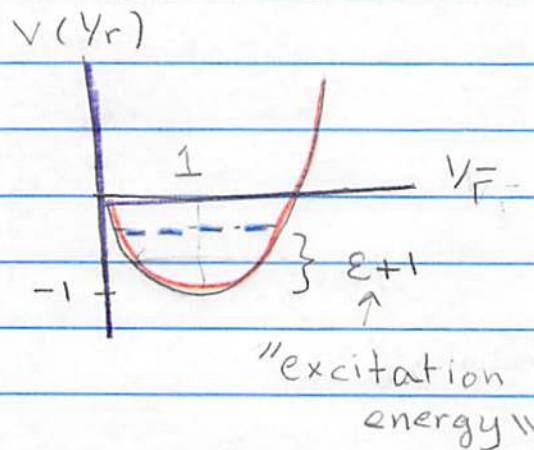 V(1/r)
1
1/r
-1
} ε+1
↑
"excitation
energy"